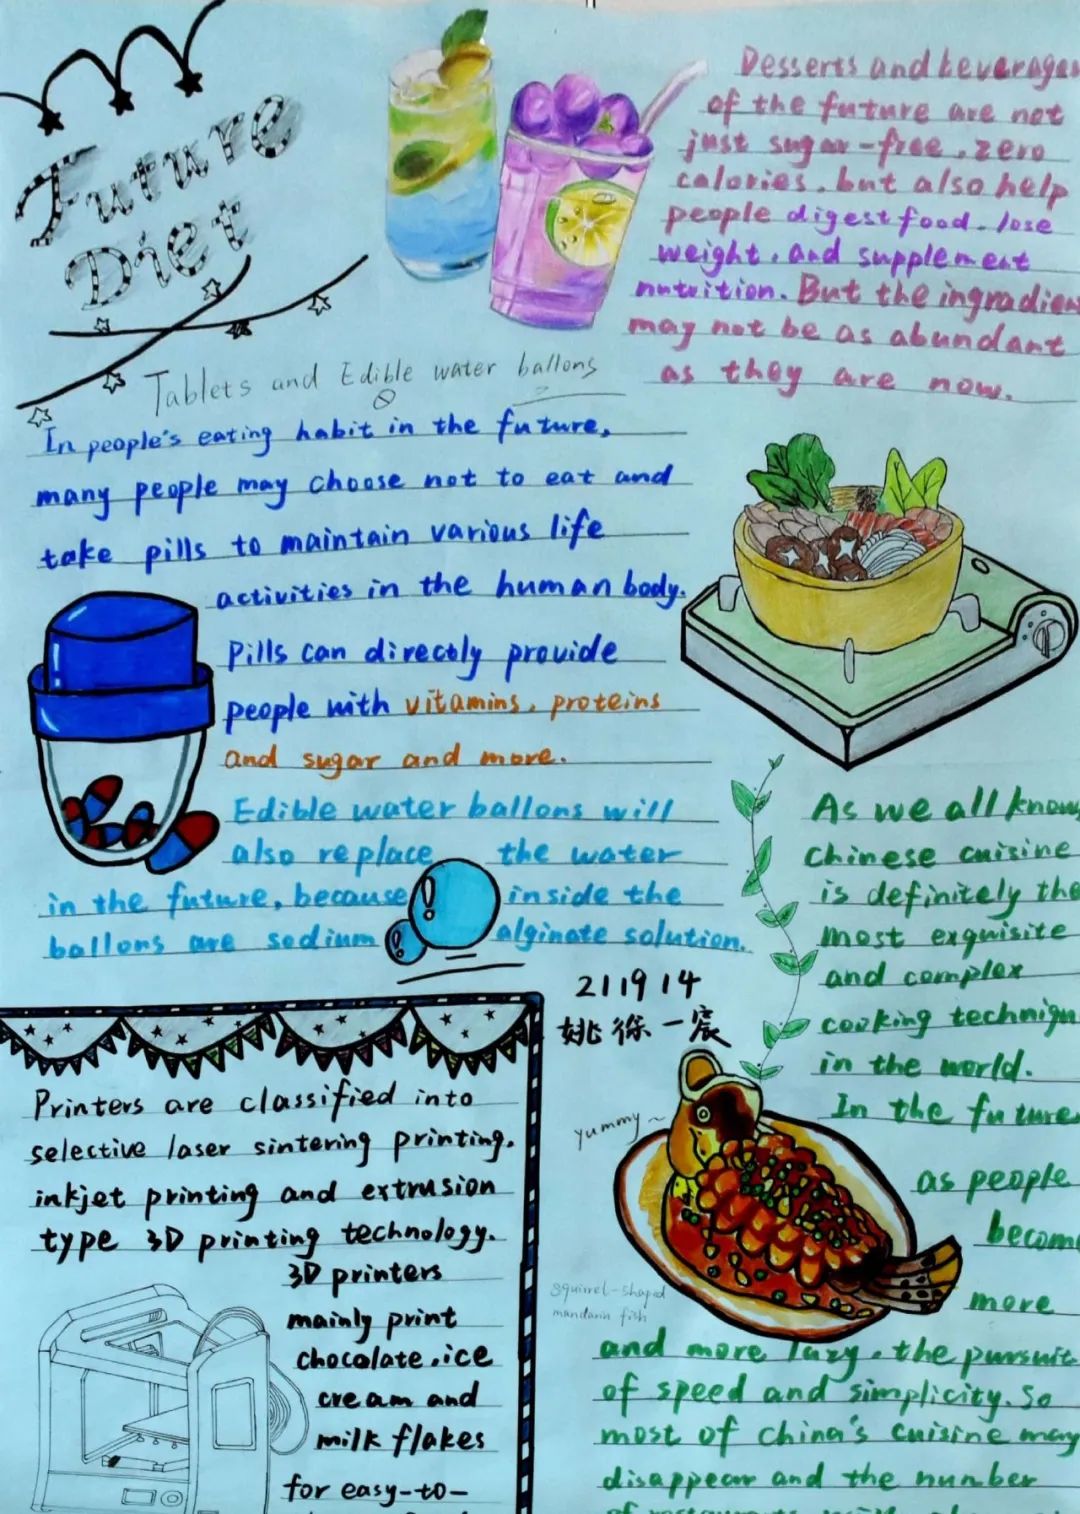 Future
Diet
Desserts and beverages
of the future are not
just sugar-free, zero
calories, but also help
people digest food, lose
weight, and supplement
nutrition. But the ingradien
may not be as abundant
as they are now.
Tablets and Edible water ballons
In people's eating habit in the future,
many people may choose not to eat and
take pills to maintain various life
activities in the human body.
Pills can directly provide
people with vitamins, proteins
and sugar and more.
Edible water ballons will
also replace the water
in the future, because inside the
ballons are sodium alginate solution.
As we all know
Chinese cuisine
is definitely the
most exquisite
and complex
cooking techniqu
in the world.
In the future
as people
become
more
and more lazy, the pursuit
of speed and simplicity. So
most of China's cuisine may
disappear and the number
of restaurants
211914
姚徐一宸
yummy~
squirrel-shaped
mandarin fish
Printers are classified into
selective laser sintering printing,
inkjet printing and extrusion
type 3D printing technology.
3D printers
mainly print
chocolate, ice
cream and
milk flakes
for easy-to-